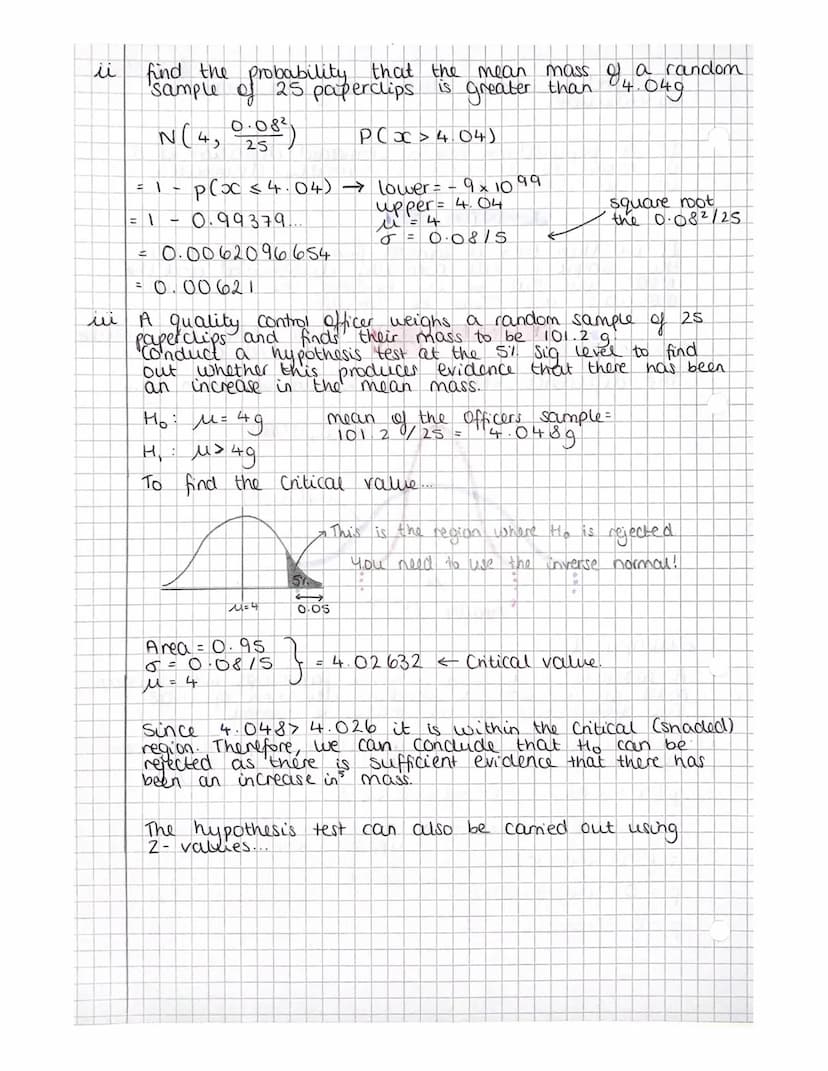 ii find the probability that the mean mass of a random
sample of 25 paperclips is greater than 4.04g
N(4, 0.08²/25) P(x > 4.04)
= 1 - p(x ≤ 4.04) → lower = - 9 x 10⁹⁹
upper = 4.04
square root
= 1 - 0.99379... μ = 4
the 0.08²/25
σ = 0.08/5
= 0.0062096654
= 0.00621
iii A quality control officer weighs a random sample of 25
paperclips and finds their mass to be 101.2 g.
Conduct a hypothesis test at the 5% sig level to find
out whether this produces evidence that there has been
an increase in the mean mass.
H₀: μ = 4g mean of the officers sample =
101.2/25 = 4.048g
H₁: μ > 4g
To find the critical value...
This is the region where H₀ is rejected
You need to use the inverse normal!
5%
μ=4 0.05
Area = 0.95
σ = 0.08/5 } = 4.02632 ← Critical value.
μ = 4
Since 4.048 > 4.026 it is within the critical (shaded)
region. Therefore, we can conclude that H₀ can be
rejected as there is sufficient evidence that there has
been an increase in mass.
The hypothesis test can also be carried out using
z-values...